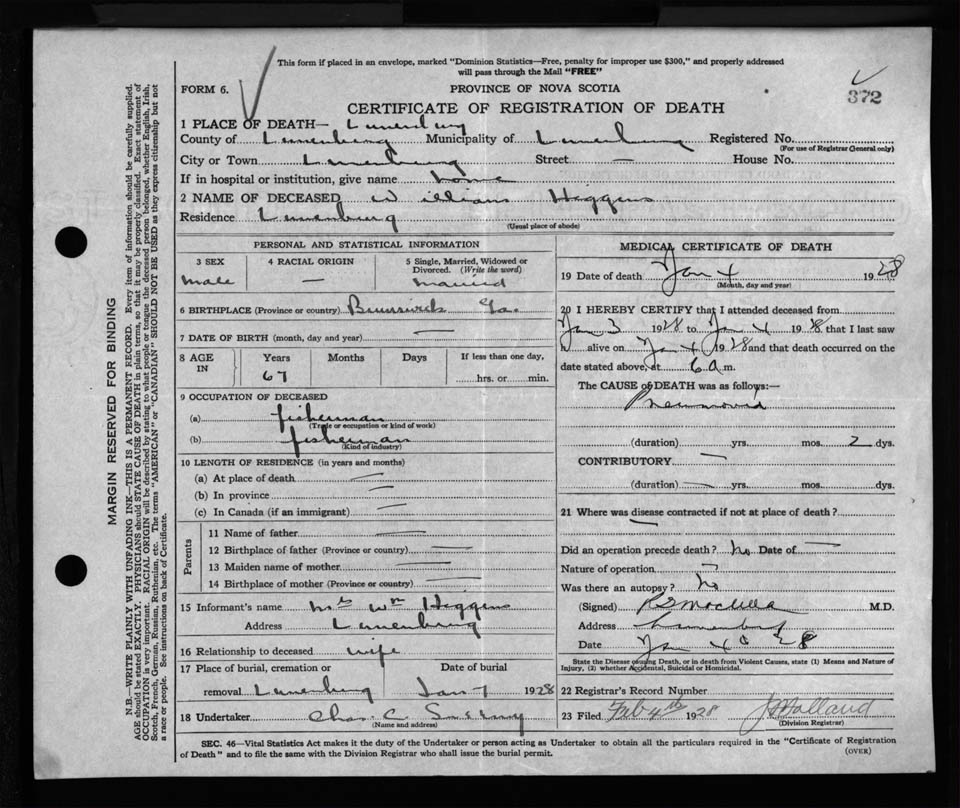 This form if placed in an envelope, marked "Dominion Statistics—Free, penalty for improper use $300," and properly addressed
will pass through the Mail "FREE"
FORM 6.
PROVINCE OF NOVA SCOTIA
372
CERTIFICATE OF REGISTRATION OF DEATH
1 PLACE OF DEATH— Lunenburg
County of Lunenburg Municipality of Lunenburg Registered No.
(For use of Registrar General only)
City or Town Lunenburg Street — House No.
If in hospital or institution, give name home
2 NAME OF DECEASED William Higgins
Residence Lunenburg
(Usual place of abode)
PERSONAL AND STATISTICAL INFORMATION
3 SEX
male
4 RACIAL ORIGIN
—
5 Single, Married, Widowed or
Divorced. (Write the word)
married
6 BIRTHPLACE (Province or country) Brunswick Ga.
7 DATE OF BIRTH (month, day and year) —
8 AGE IN
Years Months Days If less than one day,
67 hrs. or min.
9 OCCUPATION OF DECEASED
(a) fisherman
(Trade or occupation or kind of work)
(b) fisherman
(Kind of industry)
10 LENGTH OF RESIDENCE (in years and months)
(a) At place of death —
(b) In province —
(c) In Canada (if an immigrant) —
Parents
11 Name of father —
12 Birthplace of father (Province or country) —
13 Maiden name of mother —
14 Birthplace of mother (Province or country) —
15 Informant's name Mrs Wm Higgins
Address Lunenburg
16 Relationship to deceased wife
17 Place of burial, cremation or Date of burial
removal Lunenburg Jan 7 1928
18 Undertaker Chas. C.
(Name and address)
MEDICAL CERTIFICATE OF DEATH
19 Date of death Jan 4 1928
(Month, day and year)
20 I HEREBY CERTIFY that I attended deceased from
Jan 3 1928 to Jan 4 1928 that I last saw
h alive on Jan 4 1928 and that death occurred on the
date stated above, at 6 a m.
The CAUSE of DEATH was as follows:—
Pneumonia
(duration) yrs. mos. 2 dys.
CONTRIBUTORY —
(duration) — yrs. mos. dys.
21 Where was disease contracted if not at place of death?
—
Did an operation precede death? no Date of —
Nature of operation —
Was there an autopsy? no
(Signed) M.D.
Address Lunenburg
Date Jan 4 28
State the Disease causing Death, or in death from Violent Causes, state (1) Means and Nature of
Injury, (2) whether Accidental, Suicidal or Homicidal.
22 Registrar's Record Number
23 Filed Feb 4th 1928 Holland
(Division Registrar)
SEC. 46—Vital Statistics Act makes it the duty of the Undertaker or person acting as Undertaker to obtain all the particulars required in the "Certificate of Registration
of Death" and to file the same with the Division Registrar who shall issue the burial permit.
(OVER)
MARGIN RESERVED FOR BINDING
N.B.—WRITE PLAINLY WITH UNFADING INK—THIS IS A PERMANENT RECORD. Every item of information should be carefully supplied.
AGE should be stated EXACTLY. PHYSICIANS should STATE CAUSE OF DEATH in plain terms, so that it may be properly classified. Exact statement of
OCCUPATION is very important. RACIAL ORIGIN will be described by stating to what people or tongue the deceased person belonged, whether English, Irish,
Scotch, French, German, Russian, Ruthenian, etc. The terms "AMERICAN" or "CANADIAN" SHOULD NOT BE USED as they express citizenship but not
a race or people. See instructions on back of Certificate.